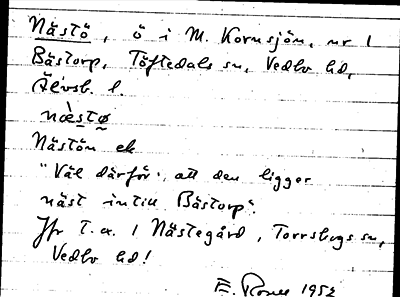 Nästö, ö i M. Kornsjön, nr 1
Bästorp, Töftedals sn, Vedbo hd,
Älvsb. l.
næ̀stø
Nästön ek
"Väl därför, att den ligger
näst intill Bästorp".
Jfr t. ex. 1 Nästegård, Torrskogs sn,
Vedbo hd!
E. 1952